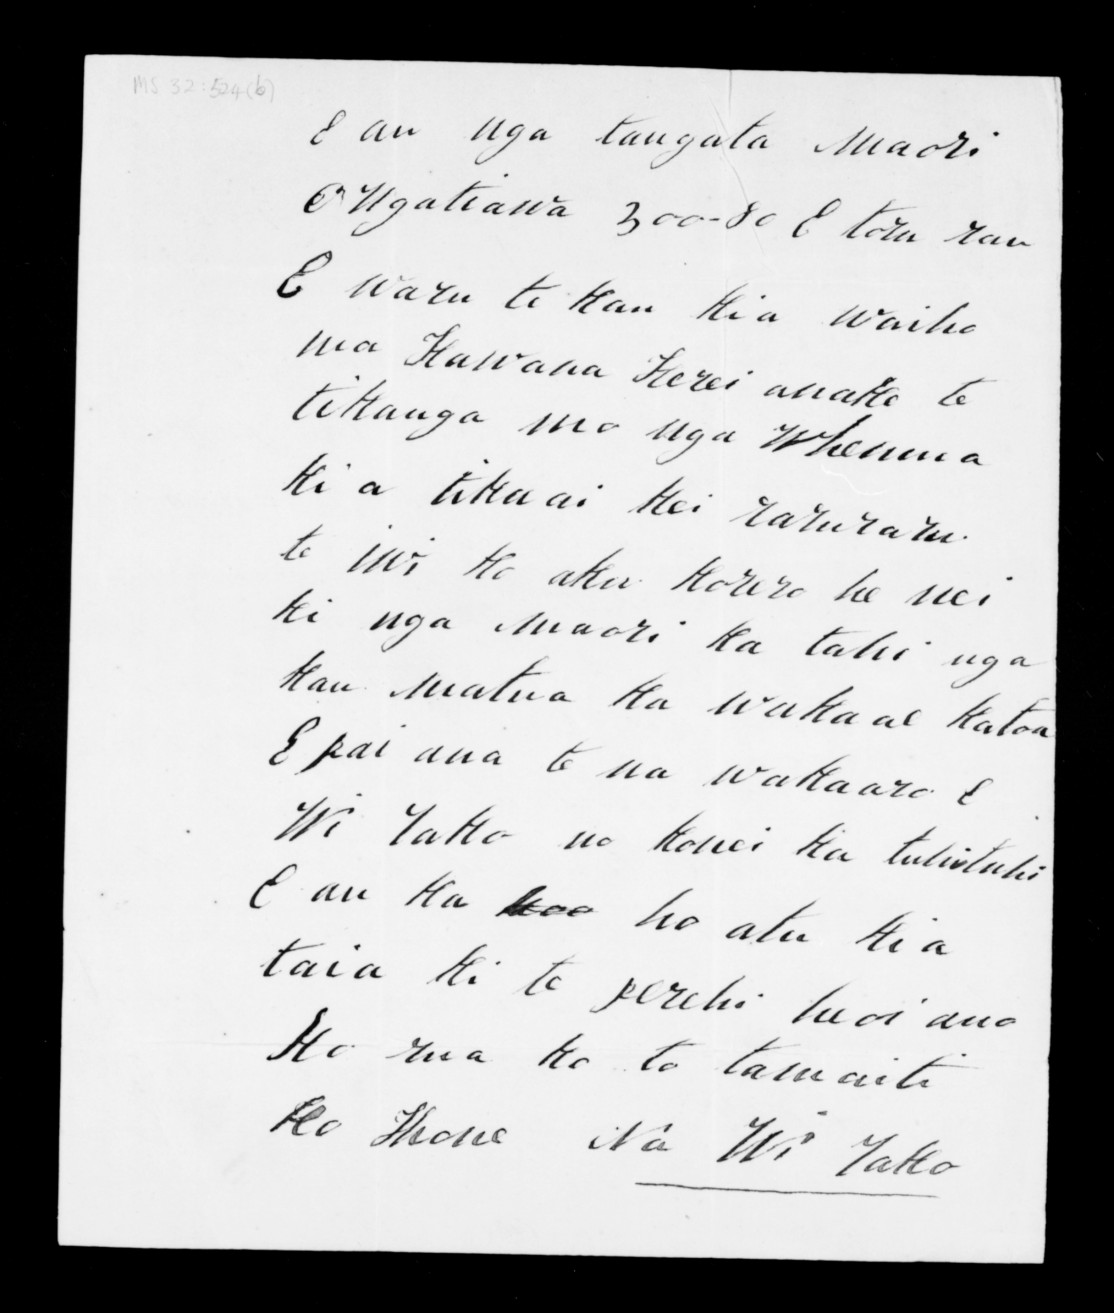 MS 32:524(b)
E au nga tangata Maori
O Ngatiawa 300-80 E toru rau
E waru te kau kia waiho
ma Kawana Kerei anake te
tikanga mo nga Whenua
kia tika ai kei raruraru
te iwi ko aku korero he nei
ki nga Maori ka tahi nga
kau matua ka wakaae katoa
E pai ana te na wakaaro E
Wi Tako no konei ka tuhituhi
E au ka ho atu kia
taia ki te perehi heoi ano
Ko rua ko to tamaiti
Ko Ihone Na Wi Tako